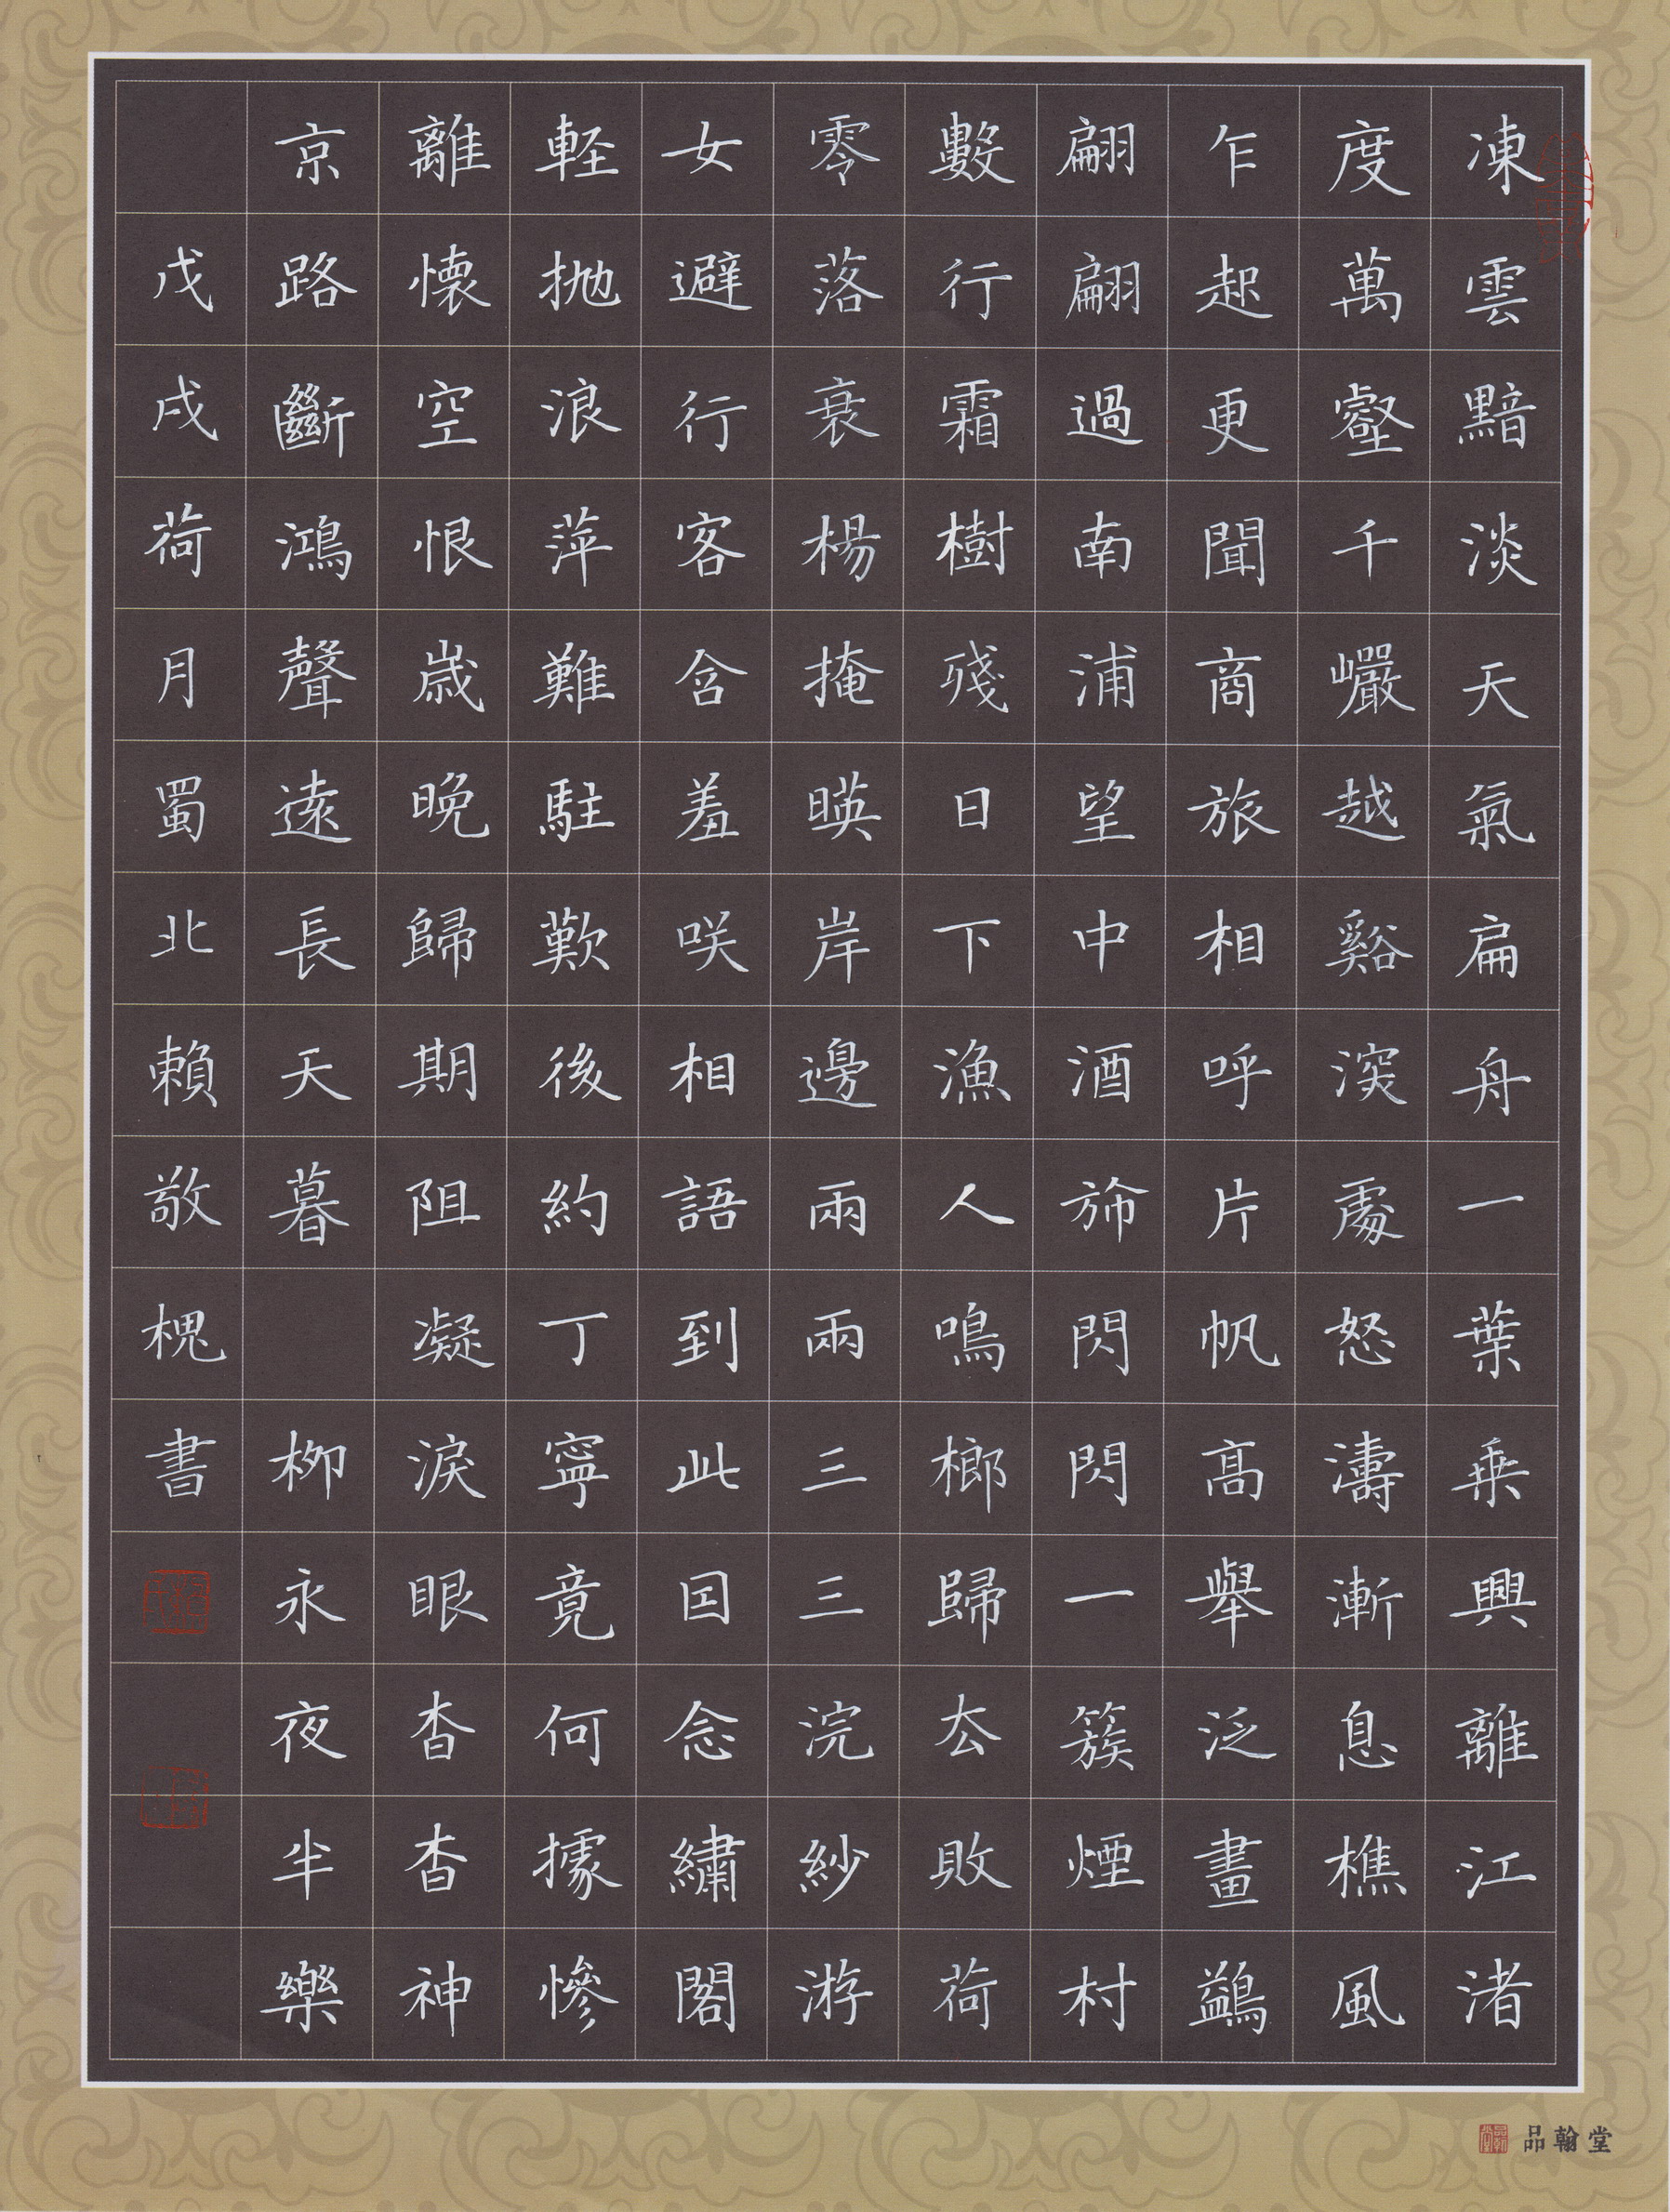 凍雲黯淡天氣扁舟一葉乗興離江渚
度萬壑千巖越谿深處怒濤漸息樵風
乍起更聞商旅相呼片帆髙舉泛畫鷁
翩翩過南浦望中酒斾閃閃一簇煙村
數行霜樹殘日下漁人鳴榔歸去敗荷
零落衰楊掩映岸邊兩兩三三浣紗游
女避行客含羞咲相語到此回念繡閣
軽抛浪萍難駐歎後約丁寧竟何據慘
離懐空恨歳晩歸期阻凝淚眼杳杳神
京路斷鴻聲遠長天暮 柳永夜半樂
戊戌荷月蜀北賴敬槐書
品翰堂